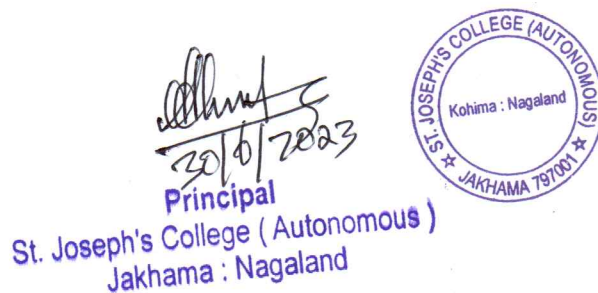 30/6/2023
Principal
St. Joseph's College ( Autonomous )
Jakhama : Nagaland
ST. JOSEPH'S COLLEGE (AUTONOMOUS)
Kohima : Nagaland
★ JAKHAMA 797001 ★